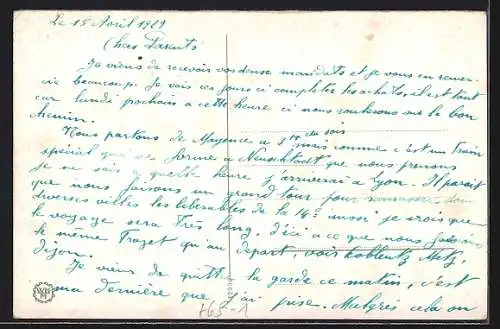 Le 15 Avril 1929
Chers Parents
Je viens de recevoir vos deux mandats et je vous en remer-
cie beaucoup. Je vais ces jours ci completer les achats, il est tant
car lundi prochain a cette heure ci nous roulerons sur le bon
chemin.
Nous partons de Mayence a 8 H du soir
mais comme c'est un train
spécial que se forme a que nous prenons
je ne sais a quelle heure j'arriverai a Lyon. Il parait
que nous faisons un grand tour pour ramasser dans
diverses villes les libérables de la aussi je crois que
le voyage sera très long, d'ici a ce que nous fassions
le même Trajet qu'au départ, vois Koblentz, Metz,
Dijon.
Je viens de quitter la garde ce matin, c'est
ma dernière que j'ai prise. Malgrés cela on
765-1